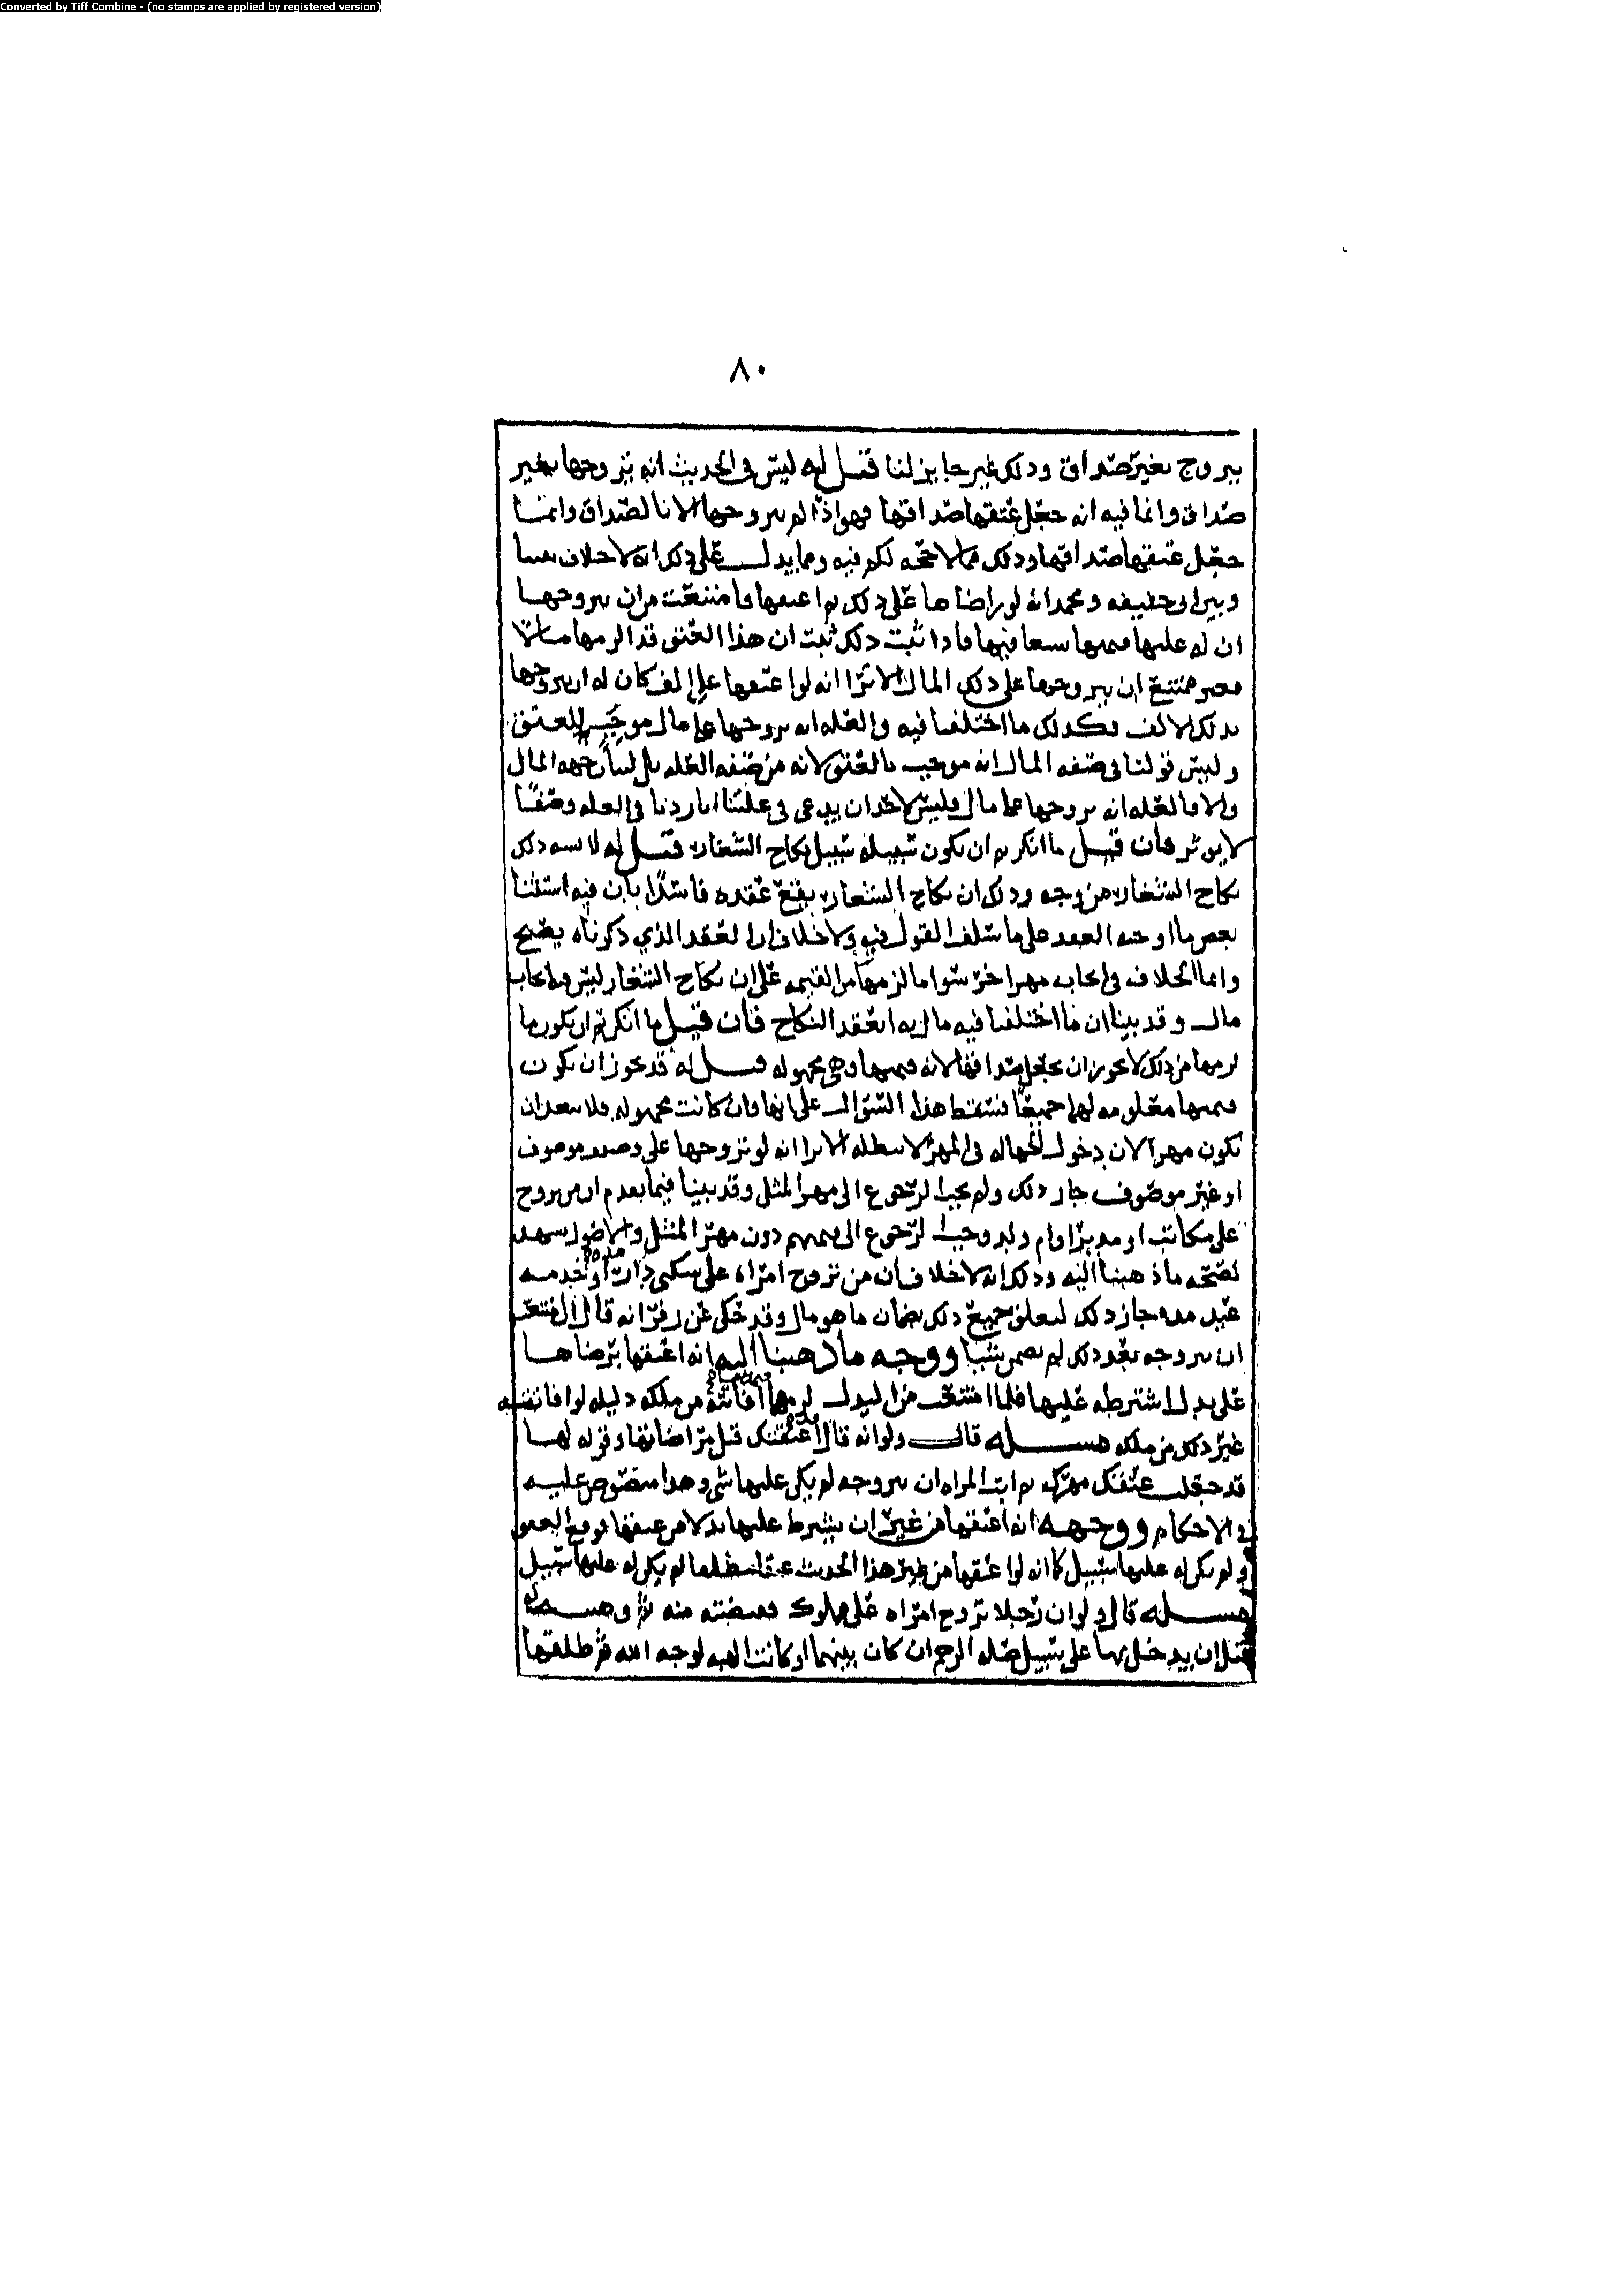 Converted by Tiff Combine - (no stamps are applied by registered version)
٨٠
يتزوج بغير صداق وذلك غير جايز لنا قيل له ليس في الحديث انه تزوجها بغير
صداق وانما فيه انه جعل عتقها صداقها فهو اذا لم يتزوجها الا بالصداق وانما
جعل عتقها صداقها وذلك مما لا حجه لكم فيه ومما يدل على ذلك انه لا خلاف بيننا
وبين ابي حنيفه ومحمد انه لو راضاها على ذلك ثم اعتقها فامتنعت من ان يتزوجها
ان له عليها قيمتها تسعا فيها فاذا ثبت ذلك ثبت ان هذا العتق قد الزمها مالا
ممتنع ان يتزوجها على ذلك المال الا ترا انه لو اعتقها على الف كان له ان يتزوجها
بذلك الالف وكذلك ما اختلفنا فيه والعله انه يتزوجها على مال موجب للعتق
وليس قولنا في صفه المال انه موجب بالعتق لانه من صفه العله بل لبيان جهه المال
والا فالعله انه يتزوجها على مال وليس لاحد ان يدعي في علتنا انا زدنا في العله وصفا
لا يوثر فان قيل ما انكرتم ان يكون سبيله سبيل نكاح الشغار قيل له لا يشبه ذلك
نكاح الشغار من وجه وذلك ان نكاح الشغار يقع عقده فاسدا بان فيه استثنا
بعض ما اوجبه العقد على ما سلف القول فيه ولا خلاف ان العقد الذي ذكرناه يصح
وانما الخلاف في ايجاب مهر اخر سوا ما لزمها من القيمه على ان نكاح الشغار ليس فيه ايجاب
مال وقد بينا ان ما اختلفنا فيه مال به انعقد النكاح فان قيل ما انكرتم ان يكون ما
لزمها من ذلك لا يجوز ان يجعل صداقها لانه قيمتها وهي مجهوله قيل له قد يجوز ان تكون
قيمتها معلومه لهما جميعا فسقط هذا السؤال على انها وان كانت مجهوله فلا يبعد ان
تكون مهرا لان دخول الجهاله في المهر لا يبطله الا ترا انه لو تزوجها على وصيف موصوف
او غير موصوف جاز ذلك ولم يجب الرجوع الى مهر المثل وقد بينا فيما تقدم ان من تزوج
على مكاتب او مدبر او ام ولد وجب الرجوع الى قيمتهم دون مهر المثل والاصول تشهد
لصحه ما ذهبنا اليه وذلك انه لا خلاف ان من تزوج امراه على سكنى دار او خدمه
عبد مده جاز ذلك لتعلق جميع ذلك بضمان ما هو مال وقد حكي عن زفر انه قال ان امتنعت
ان تتزوجه بعد ذلك لم تضمن شيا ووجه ما ذهبنا اليه انه اعتقها برضاها
على بدل اشترطه عليها فلما امتنعت من البدل لزمها ما فاتته من ملكه دليله لو افاتته
غير ذلك من ملكه مسله قال ولو انه قال اعتقتك قبل مراضاتها وقوله لها
قد جعلت عتقك مهرك ثم ابت المراه ان تتزوجه لم يكن عليها شي وهذا منصوص عليه
في الاحكام ووجهه انه اعتقها من غير ان يشرط عليها بدلا من عتقها فوقع العتق
ولم يكن له عليها سبيل كما انه لو اعتقها من غير هذا الحديث عتقا مطلقا لم يكن له عليها سبيل
مسله قال ولو ان رجلا تزوج امراه على مملوك فقبضته منه ثم وهبته له
قبل ان يدخل بها على سبيل صله الرحم ان كان بينهما او كانت الهبه لوجه الله ثم طلقها